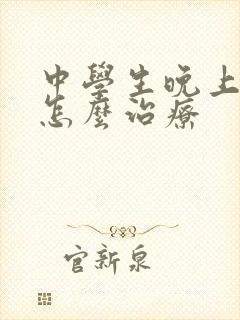 中學生晚上
怎麼治療
官新泉